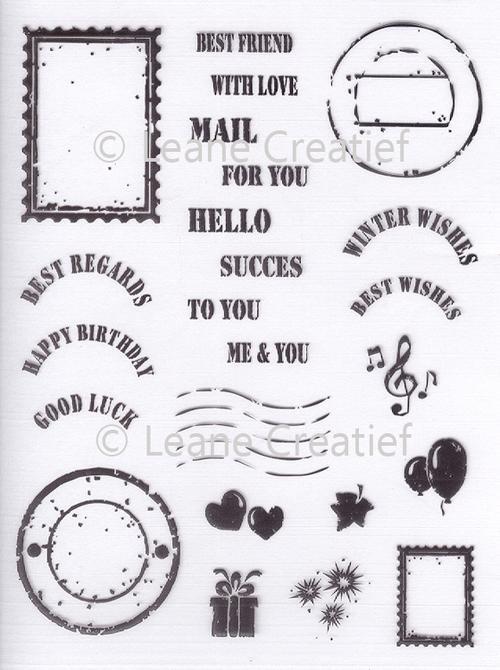 BEST FRIEND
WITH LOVE
MAIL
© Leane Creatief
FOR YOU
HELLO
WINTER WISHES
BEST REGARDS
SUCCES
BEST WISHES
TO YOU
HAPPY BIRTHDAY
ME & YOU
GOOD LUCK
© Leane Creatief